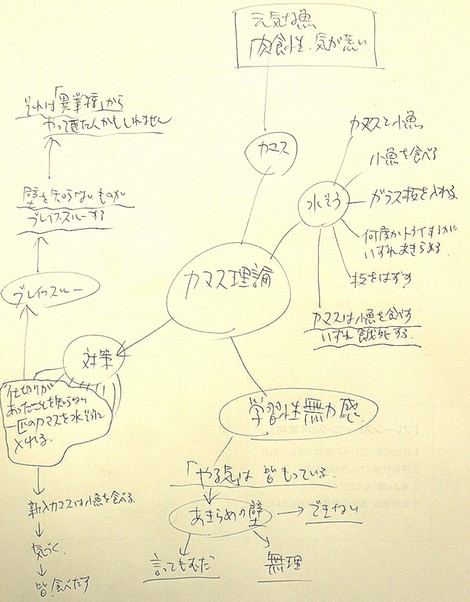 元気な魚
肉食性、気が荒い
カマス
それは「異業種」から
やって来た人かもしれません
壁を知らないものが
ブレイクスルーする
ブレイクスルー
水そう
カマスと小魚
小魚を食べる
ガラス板を入れる
何度かトライするが
いずれあきらめる
板をはずす
カマスは小魚を食べず
いずれ餓死する
カマス理論
対策
仕切りが
あったことを知らない
一匹のカマスを水そうに
入れる
新入カマスは小魚を食べる
気づく
皆食べだす
学習性無力感
「やる気」は皆もっている。
あきらめの壁
できない
言ってもむだ
無理